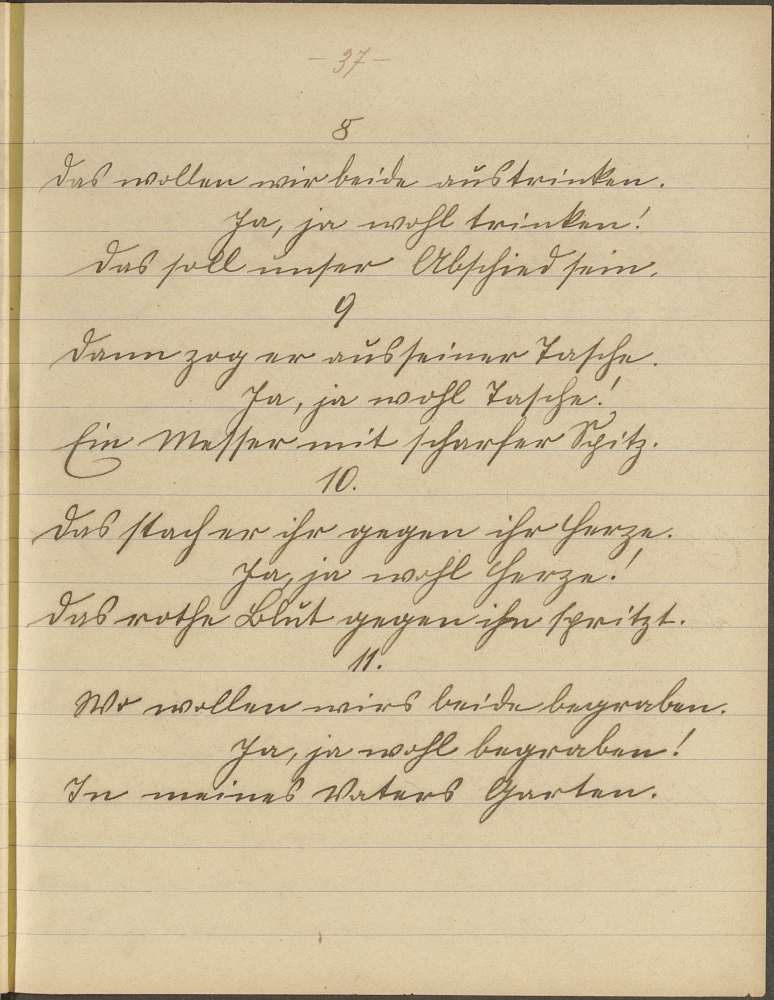 - 37 -
8
Das wollen wir beide austrinken.
Ja, ja wohl trinken!
Das soll unser Abschied sein.
9
Dann zog er aus seiner Tasche.
Ja, ja wohl Tasche!
Ein Messer mit scharfer Spitz.
10.
Das stach er ihr gegen ihr Herze.
Ja, ja wohl Herze!
Das rothe Blut gegen ihn spritzt.
11.
Wo wollen wirs beide begraben.
Ja, ja wohl begraben!
In meines Vaters Garten.